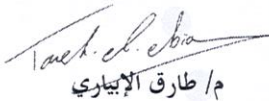 Tarek. el. ebia
م/ طارق الإبياري